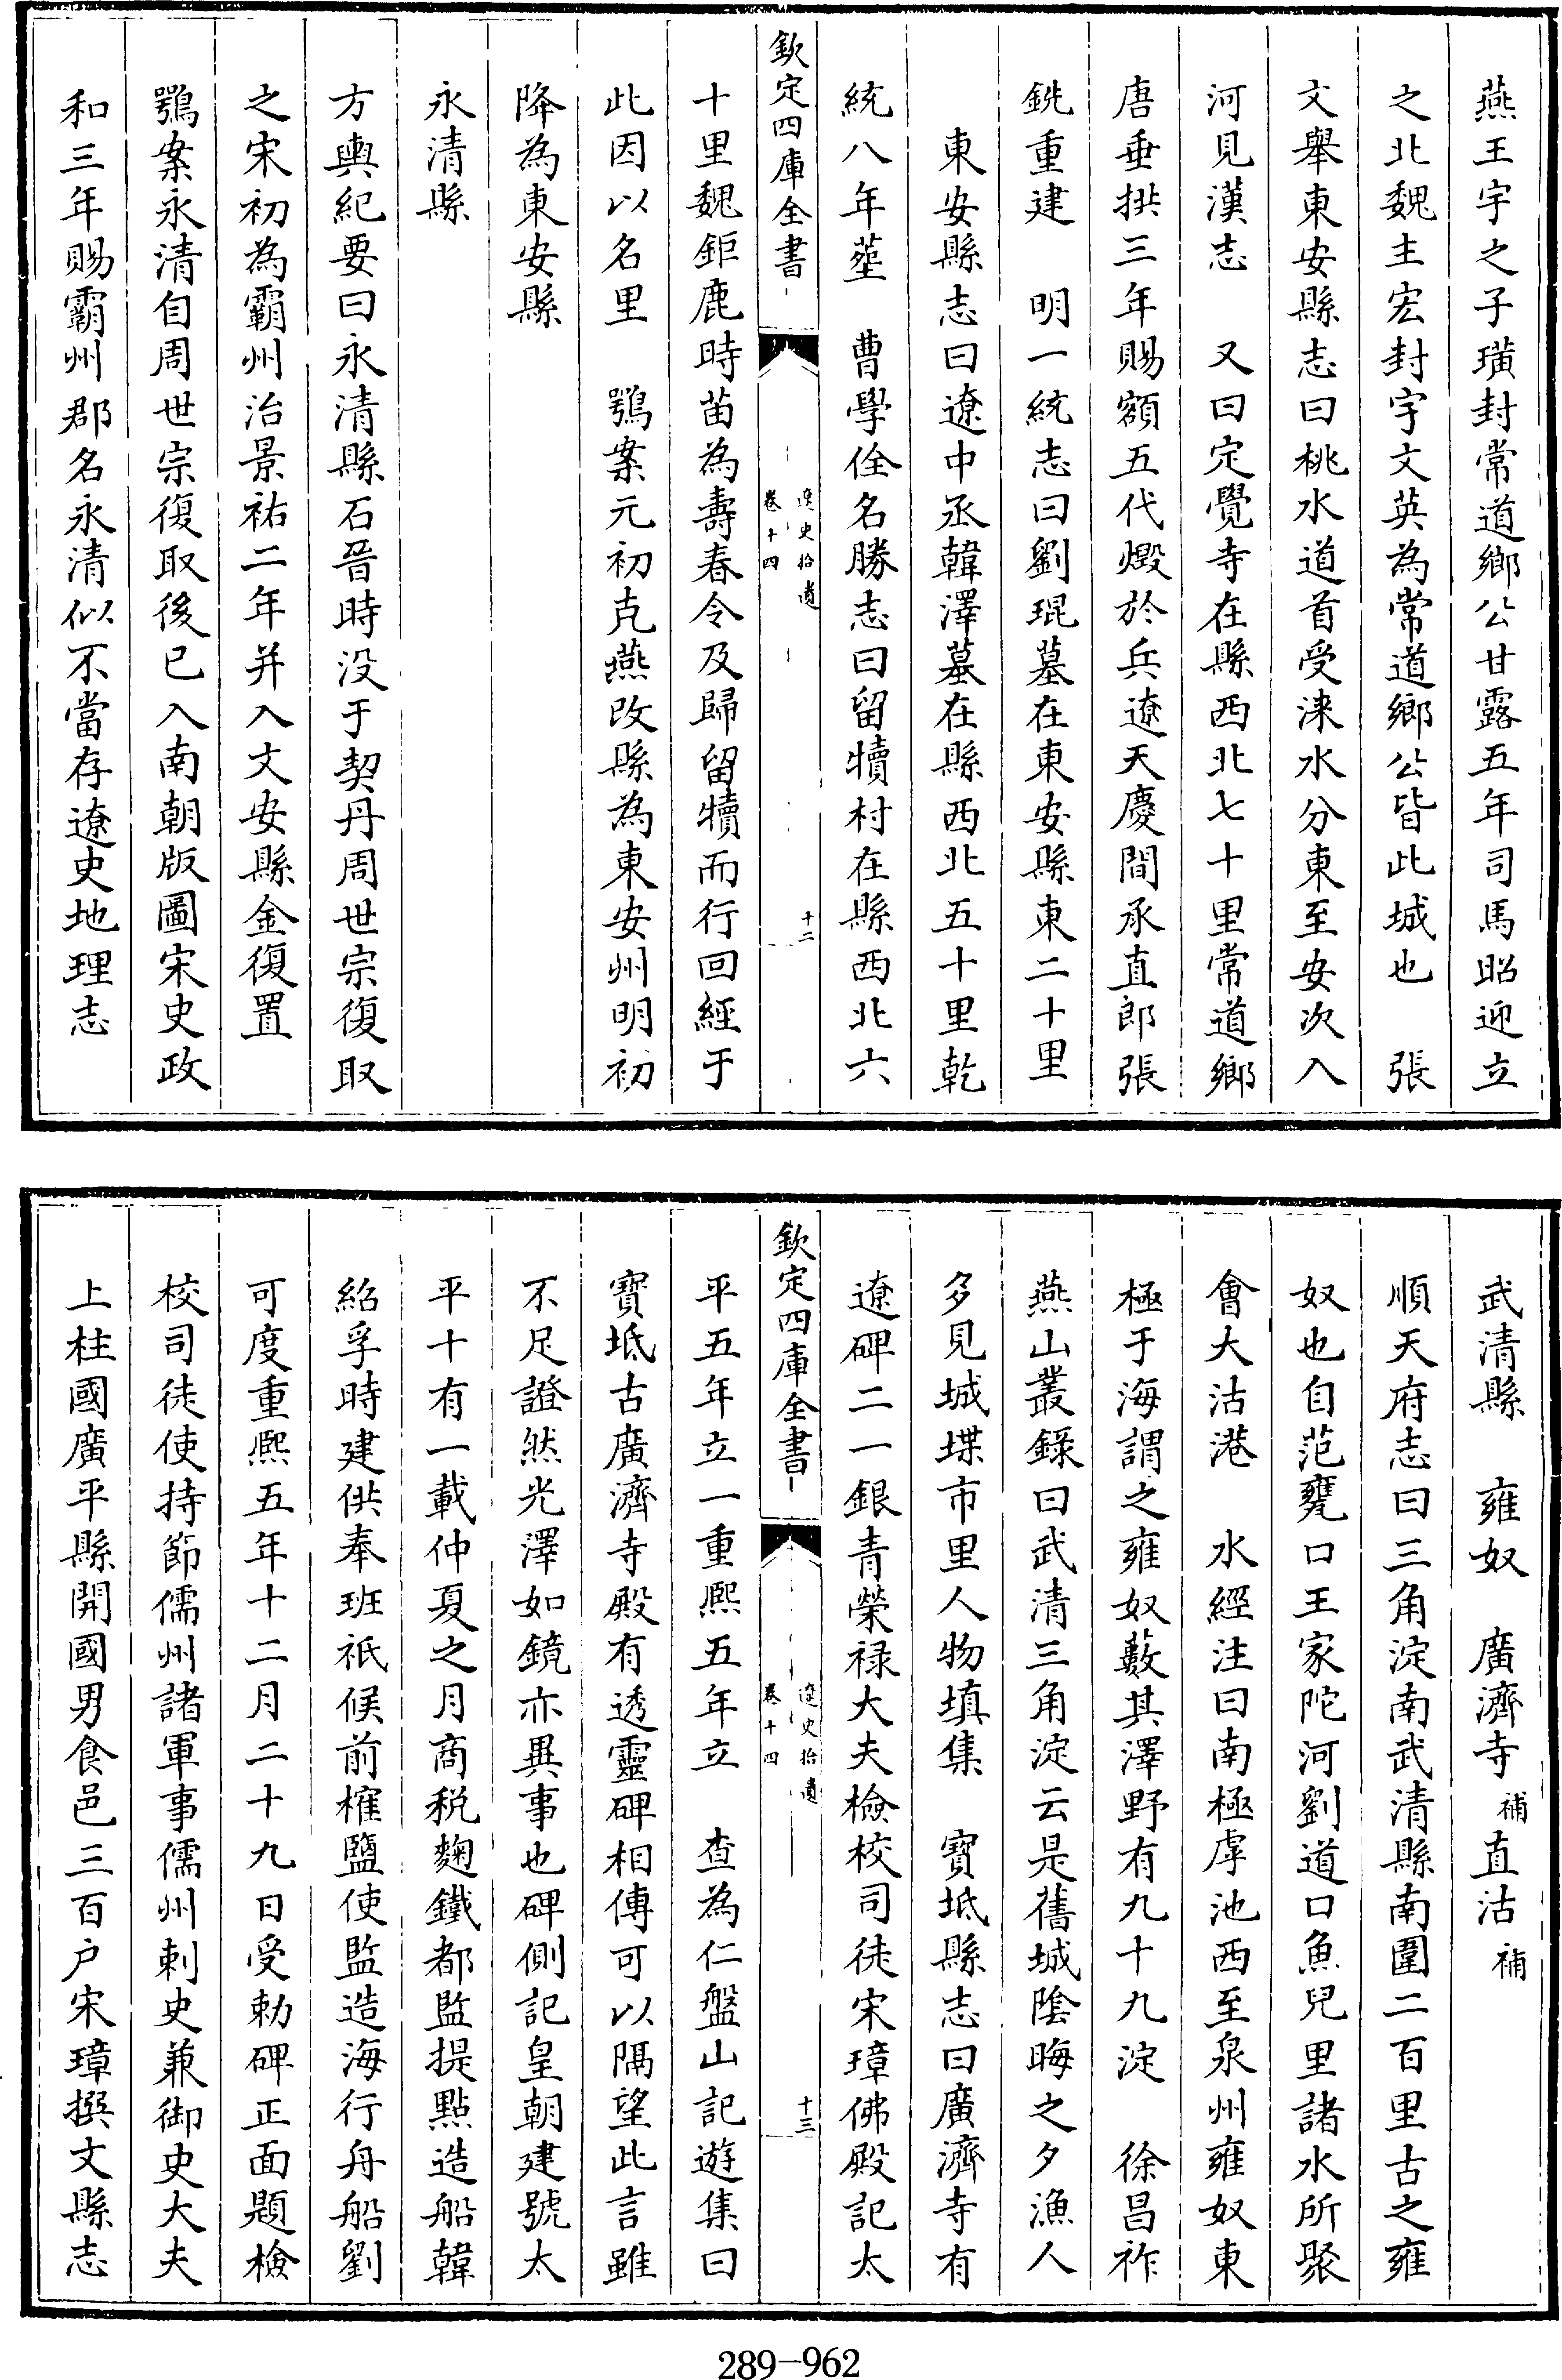 燕王宇之子璜封常道鄉公甘露五年司馬昭迎立
之北魏主宏封宇文英為常道鄉公皆此城也　張
文舉東安縣志曰桃水道首受淶水分東至安次入
河見漢志　又曰定覺寺在縣西北七十里常道鄉
唐垂拱三年賜額五代燬於兵遼天慶間承直郎張
銑重建　明一統志曰劉琨墓在東安縣東二十里
東安縣志曰遼中丞韓澤墓在縣西北五十里乾
統八年葬　曹學佺名勝志曰留犢村在縣西北六
欽定四庫全書
遼史拾遺
卷十四
十二
十里魏鉅鹿時苗為壽春令及歸留犢而行回經于
此因以名里　鶚案元初克燕改縣為東安州明初
降為東安縣
永清縣
方輿紀要曰永清縣石晉時没于契丹周世宗復取
之宋初為霸州治景祐二年并入文安縣金復置
鶚案永清自周世宗復取後已入南朝版圖宋史政
和三年賜霸州郡名永清似不當存遼史地理志
武清縣　雍奴　廣濟寺補直沽補
順天府志曰三角淀南武清縣南圍二百里古之雍
奴也自范甕口王家陀河劉道口魚兒里諸水所聚
會大沽港　水經注曰南極虖池西至泉州雍奴東
極于海謂之雍奴藪其澤野有九十九淀　徐昌祚
燕山叢錄曰武清三角淀云是舊城陰晦之夕漁人
多見城堞市里人物填集　寶坻縣志曰廣濟寺有
遼碑二一銀青榮禄大夫檢校司徒宋璋佛殿記太
欽定四庫全書
遼史拾遺
卷十四
十三
平五年立一重熙五年立　查為仁盤山記遊集曰
寶坻古廣濟寺殿有透靈碑相傳可以隔望此言雖
不足證然光澤如鏡亦異事也碑側記皇朝建號太
平十有一載仲夏之月商税麴鐵都監提點造船韓
紹孚時建供奉班祇候前榷鹽使監造海行舟船劉
可度重熙五年十二月二十九日受勅碑正面題檢
校司徒使持節儒州諸軍事儒州刺史兼御史大夫
上柱國廣平縣開國男食邑三百户宋璋撰文縣志
289-962